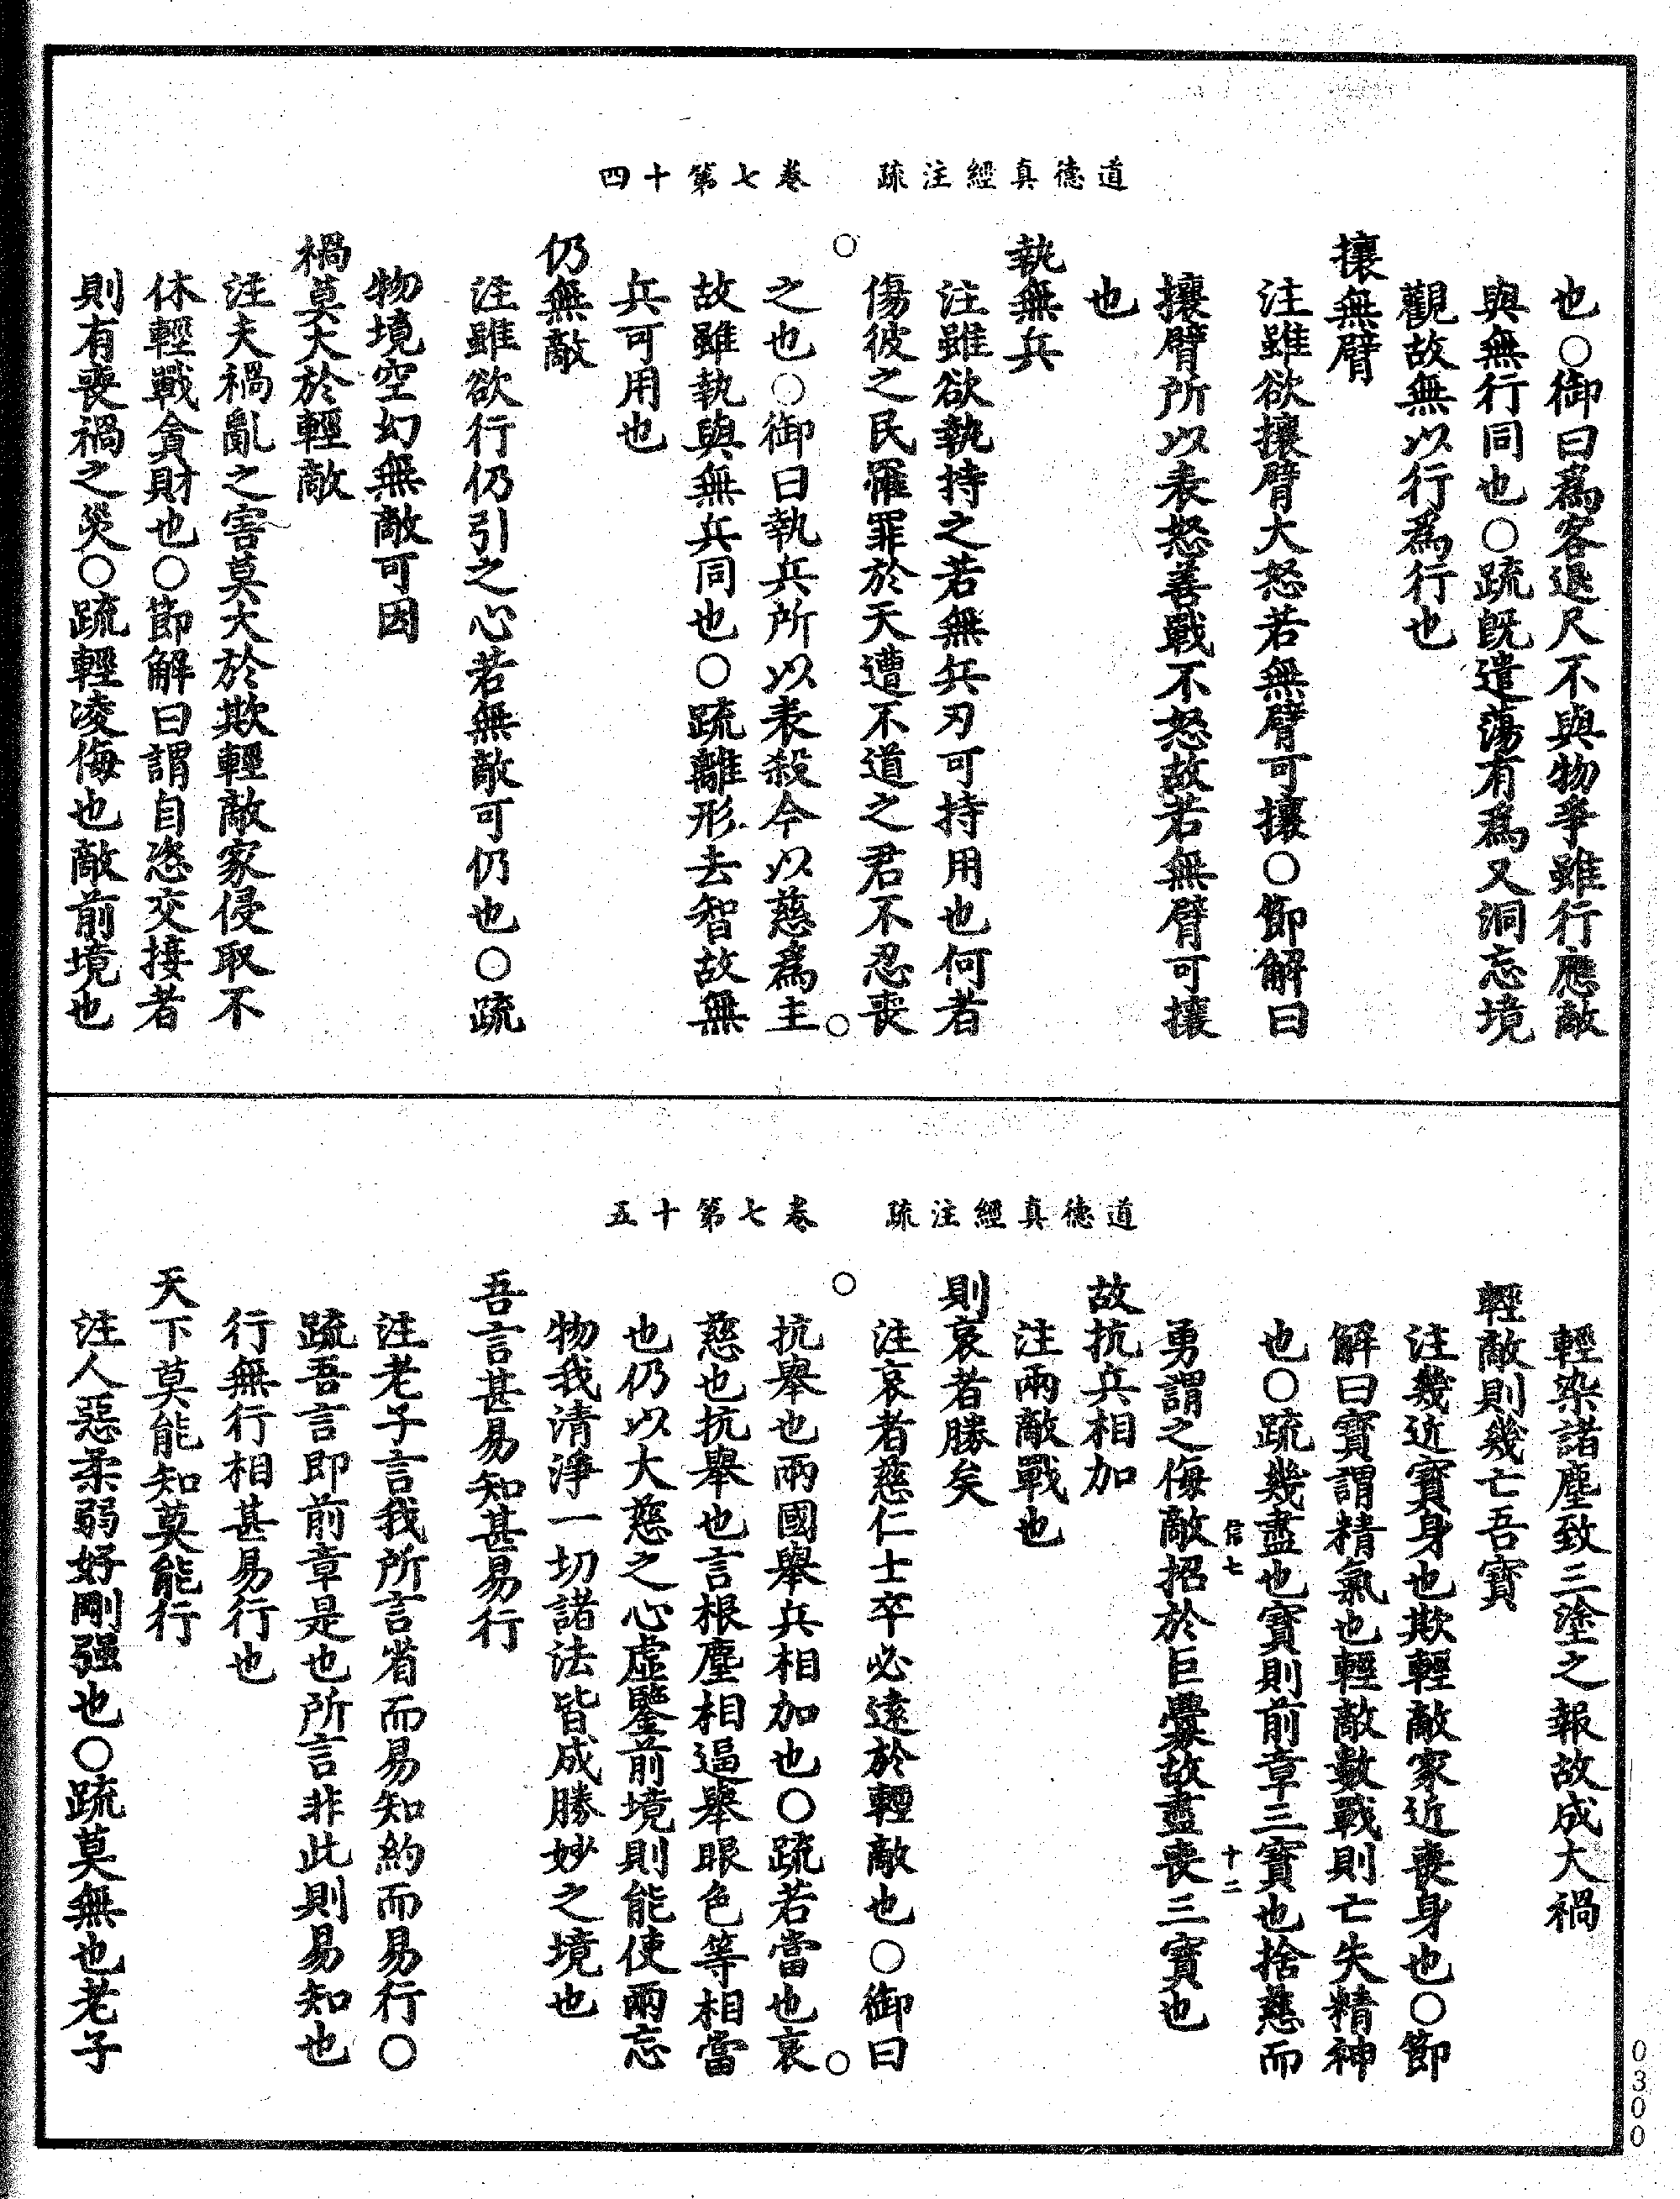 道德真經注疏　卷七第十四
也○御曰爲客退尺不與物爭雖行應敵
與無行同也○疏既遣蕩有爲又洞忘境
觀故無以行爲行也
攘無臂
注雖欲攘臂大怒若無臂可攘○節解曰
攘臂所以表怒善戰不怒故若無臂可攘
也
執無兵
注雖欲執持之若無兵刃可持用也何者
傷彼之民罹罪於天遭不道之君不忍喪
○
○
之也○御曰執兵所以表殺今以慈爲主
故雖執與無兵同也○疏離形去智故無
兵可用也
仍無敵
注雖欲行仍引之心若無敵可仍也○疏
物境空幻無敵可因
禍莫大於輕敵
注夫禍亂之害莫大於欺輕敵家侵取不
休輕戰貪財也○節解曰謂自恣交接者
則有喪禍之災○疏輕凌侮也敵前境也
道德真經注疏　卷七第十五
輕染諸塵致三塗之報故成大禍
輕敵則幾亡吾寶
注幾近寶身也欺輕敵家近喪身也○節
解曰寶謂精氣也輕敵數戰則亡失精神
也○疏幾盡也寶則前章三寶也捨慈而
信七　十二
勇謂之侮敵招於巨釁故盡喪三寶也
故抗兵相加
注兩敵戰也
則哀者勝矣
注哀者慈仁士卒必遠於輕敵也○御曰
○
○
抗舉也兩國舉兵相加也○疏若當也哀
慈也抗舉也言根塵相逼舉眼色等相當
也仍以大慈之心虛鑒前境則能使兩忘
物我清淨一切諸法皆成勝妙之境也
吾言甚易知甚易行
注老子言我所言省而易知約而易行○
疏吾言即前章是也所言非此則易知也
行無行相甚易行也
天下莫能知莫能行
注人惡柔弱好剛强也○疏莫無也老子
0300